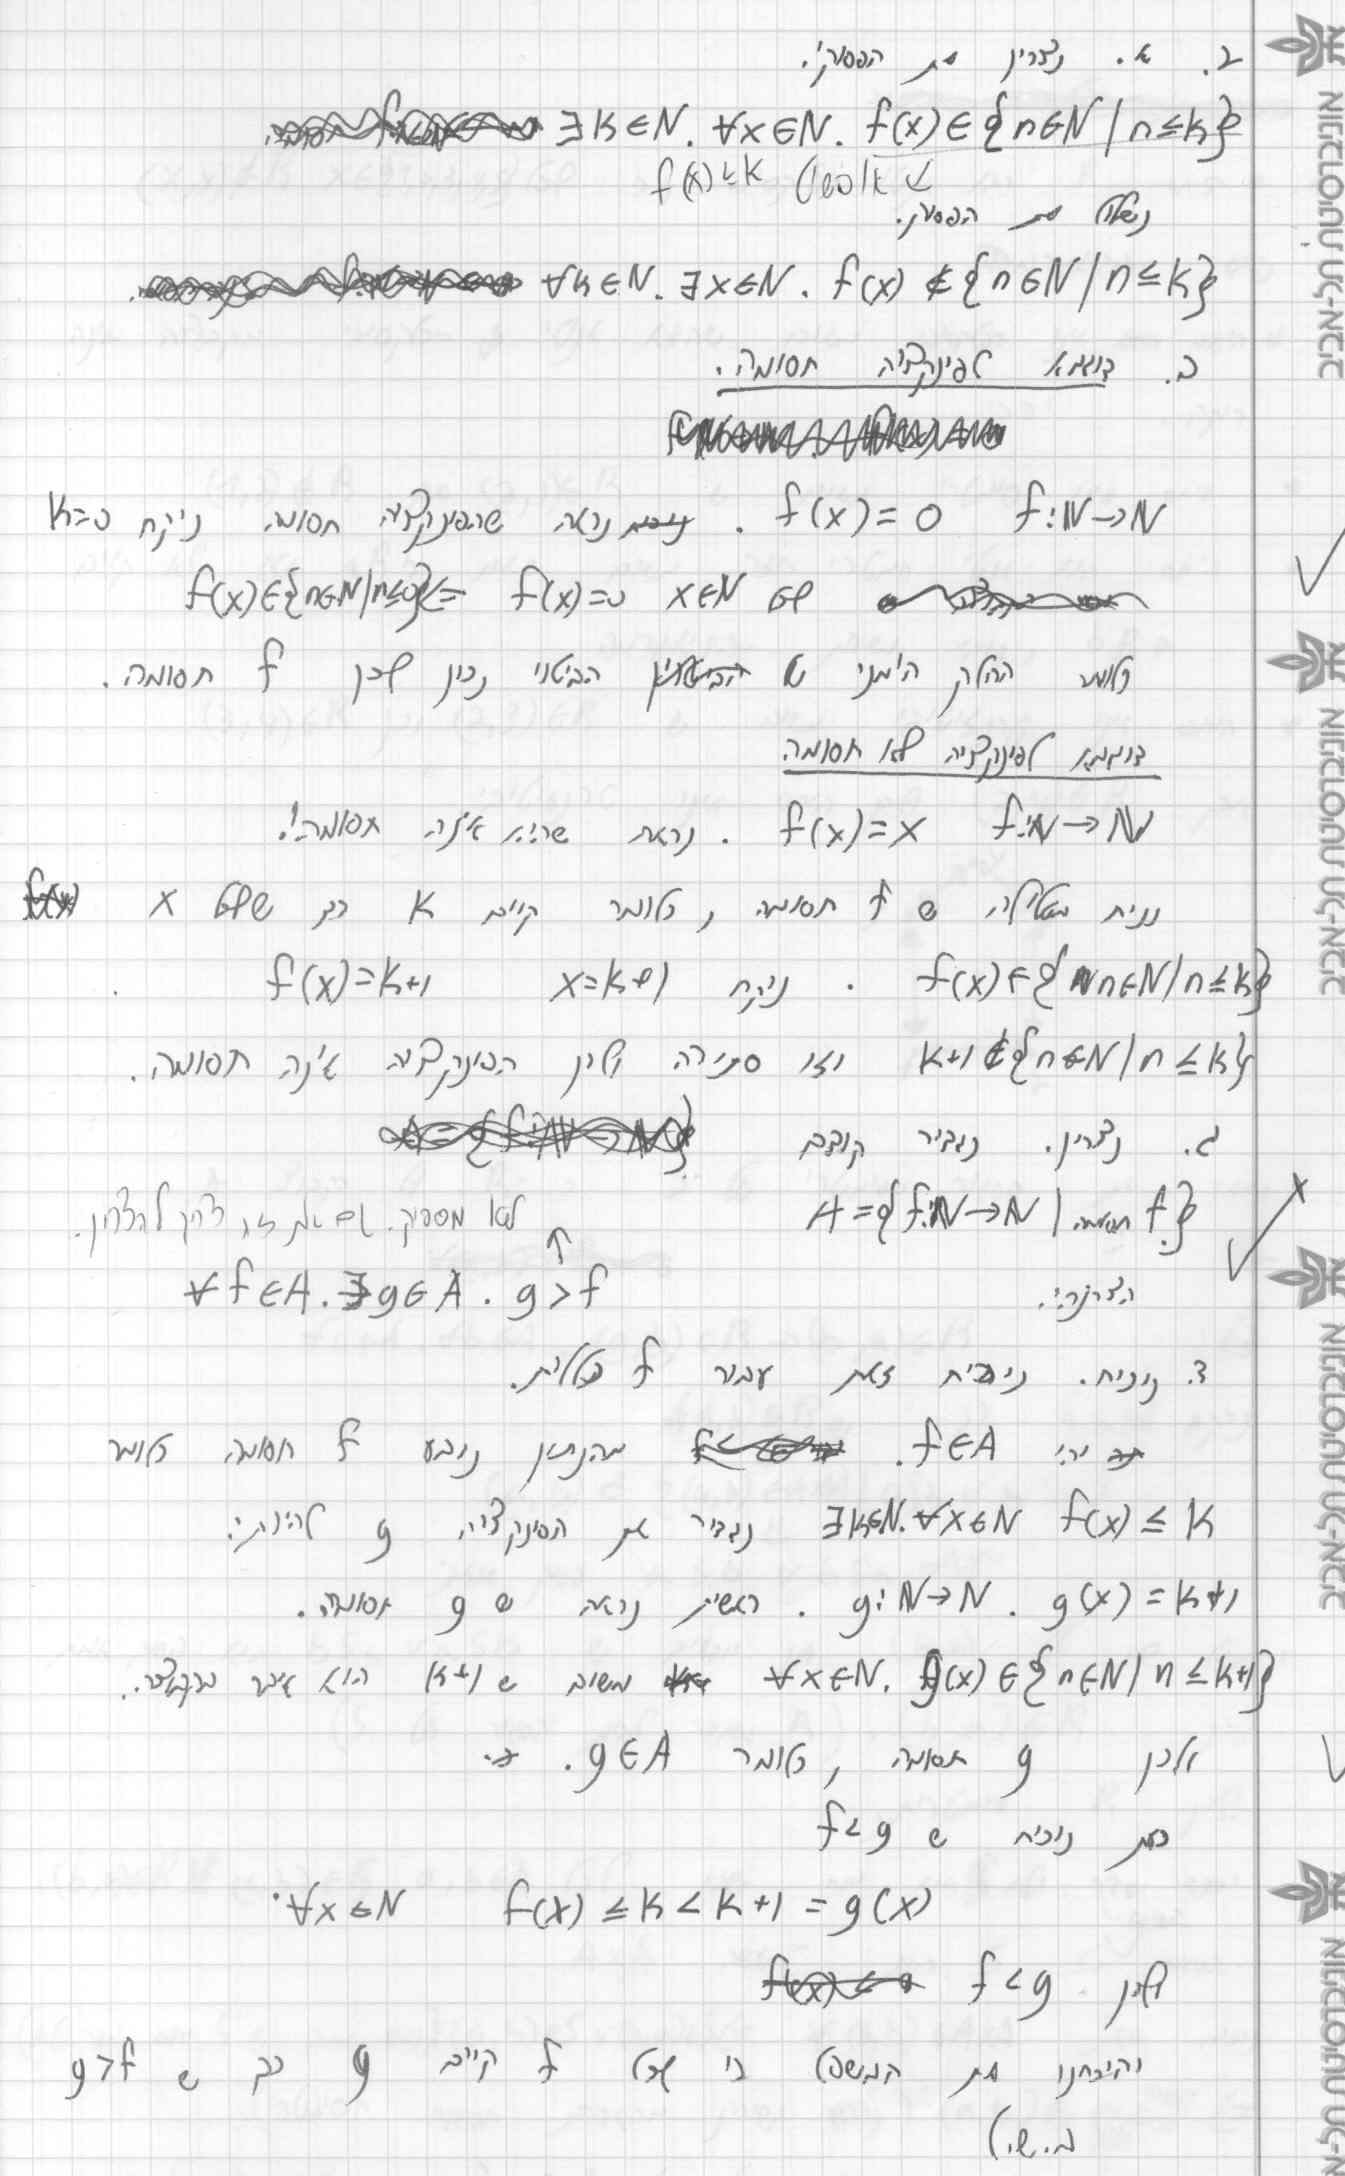 2. א. נצרין את הפסוק:
∃k∈N. ∀x∈N. f(x)∈{n∈N | n≤k}
↙ אפשר f(x)≤k
נשלול את הפסוק.
∀k∈N. ∃x∈N. f(x)∉{n∈N | n≤k}
ב. דוגמא לפונקציה חסומה.
f:N→N f(x)=0 . נראה שהפונקציה חסומה ניקח k=0
לכל x∈N f(x)=0 => f(x)∈{n∈N|n≤0}
כלומר החלק הימני של הביטוי נכון לכן f חסומה.
דוגמא לפונקציה לא חסומה.
f:N→N f(x)=x . נראה שהיא אינה חסומה:
נניח בשלילה ש f חסומה, כלומר קיים k כך שלכל x
f(x)∈{n∈N|n≤k} . ניקח x=k+1 f(x)=k+1
k+1∉{n∈N|n≤k} וזו סתירה ולכן הפונקציה אינה חסומה.
ג. נצרין. נגדיר קודם
A={f:N→N | חסומה f}
לא מספיק. גם את זה צריך להצרין.
הצרנה:
∀f∈A. ∃g∈A. g>f
ד. נוכיח. נוכיח זאת עבור f כללית.
יהי f∈A. מהנתון נובע f חסומה כלומר
∃k∈N. ∀x∈N f(x)≤k נגדיר את הפונקציה g להיות:
g:N→N. g(x)=k+1 . ראשית נראה ש g חסומה.
∀x∈N. g(x)∈{n∈N|n≤k+1} משום ש k+1 הוא איבר בקבוצה.
ולכן g חסומה, כלומר g∈A.
כעת נוכיח ש f<g
∀x∈N f(x)≤k<k+1=g(x)
ולכן f<g
והוכחנו את המשפט כי לכל f קיים g כך ש g>f
מ.ש.ל
אוניברסיטת בן-גוריון בנגב